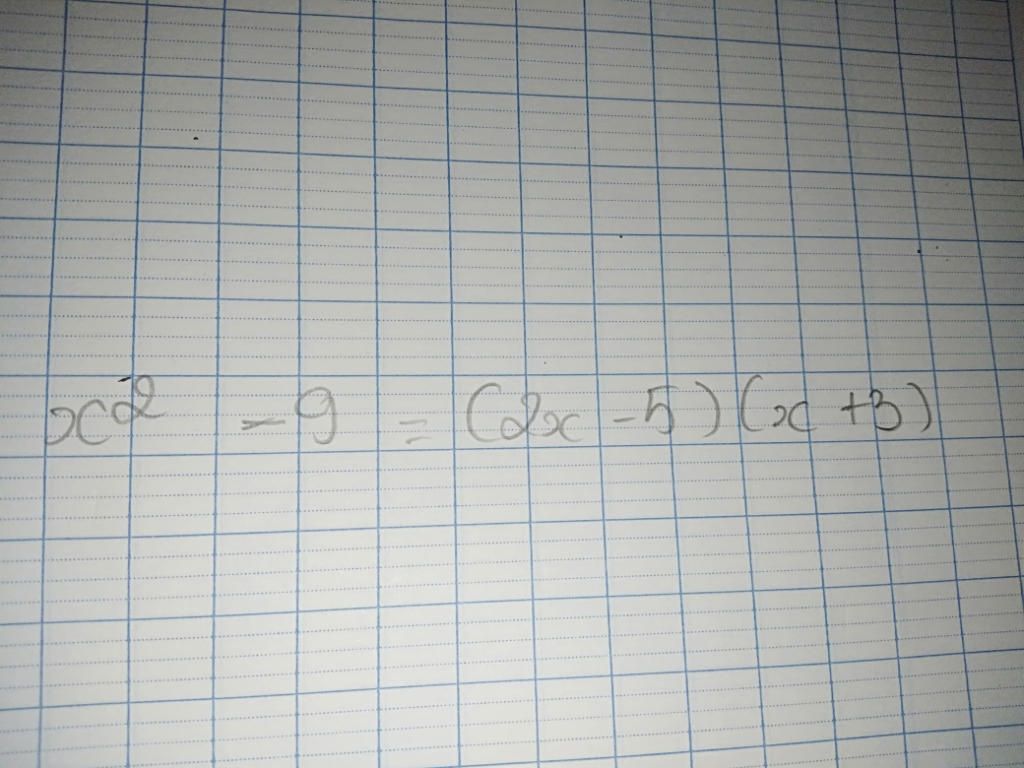 x² - 9 = (2x - 5)(x + 3)